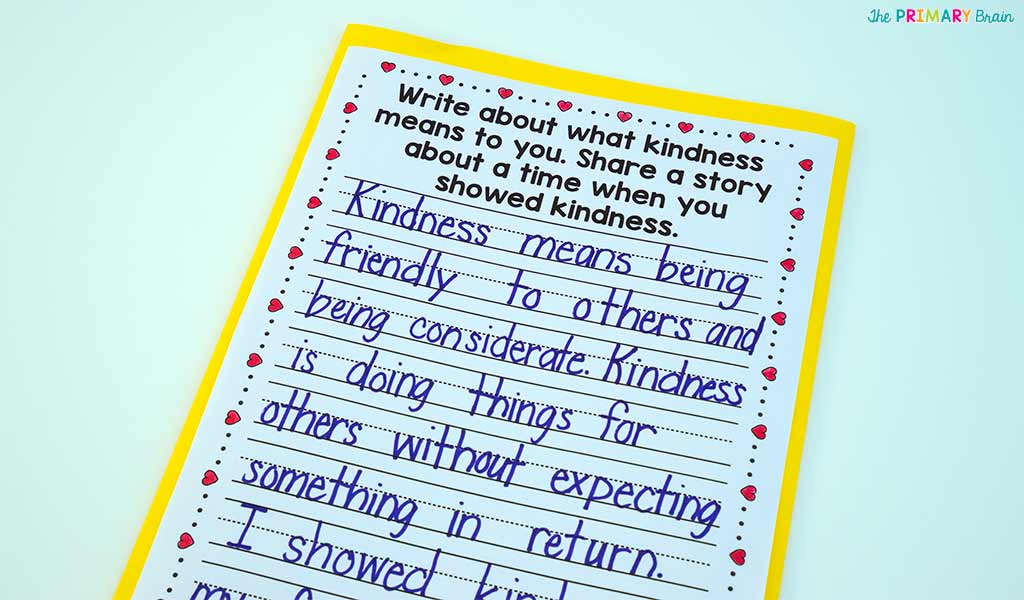 The PRIMARY Brain
Write about what kindness
means to you. Share a story
about a time when you
showed kindness.
Kindness means being
friendly to others and
being considerate. Kindness
is doing things for
others without expecting
something in return.
I showed kind
my